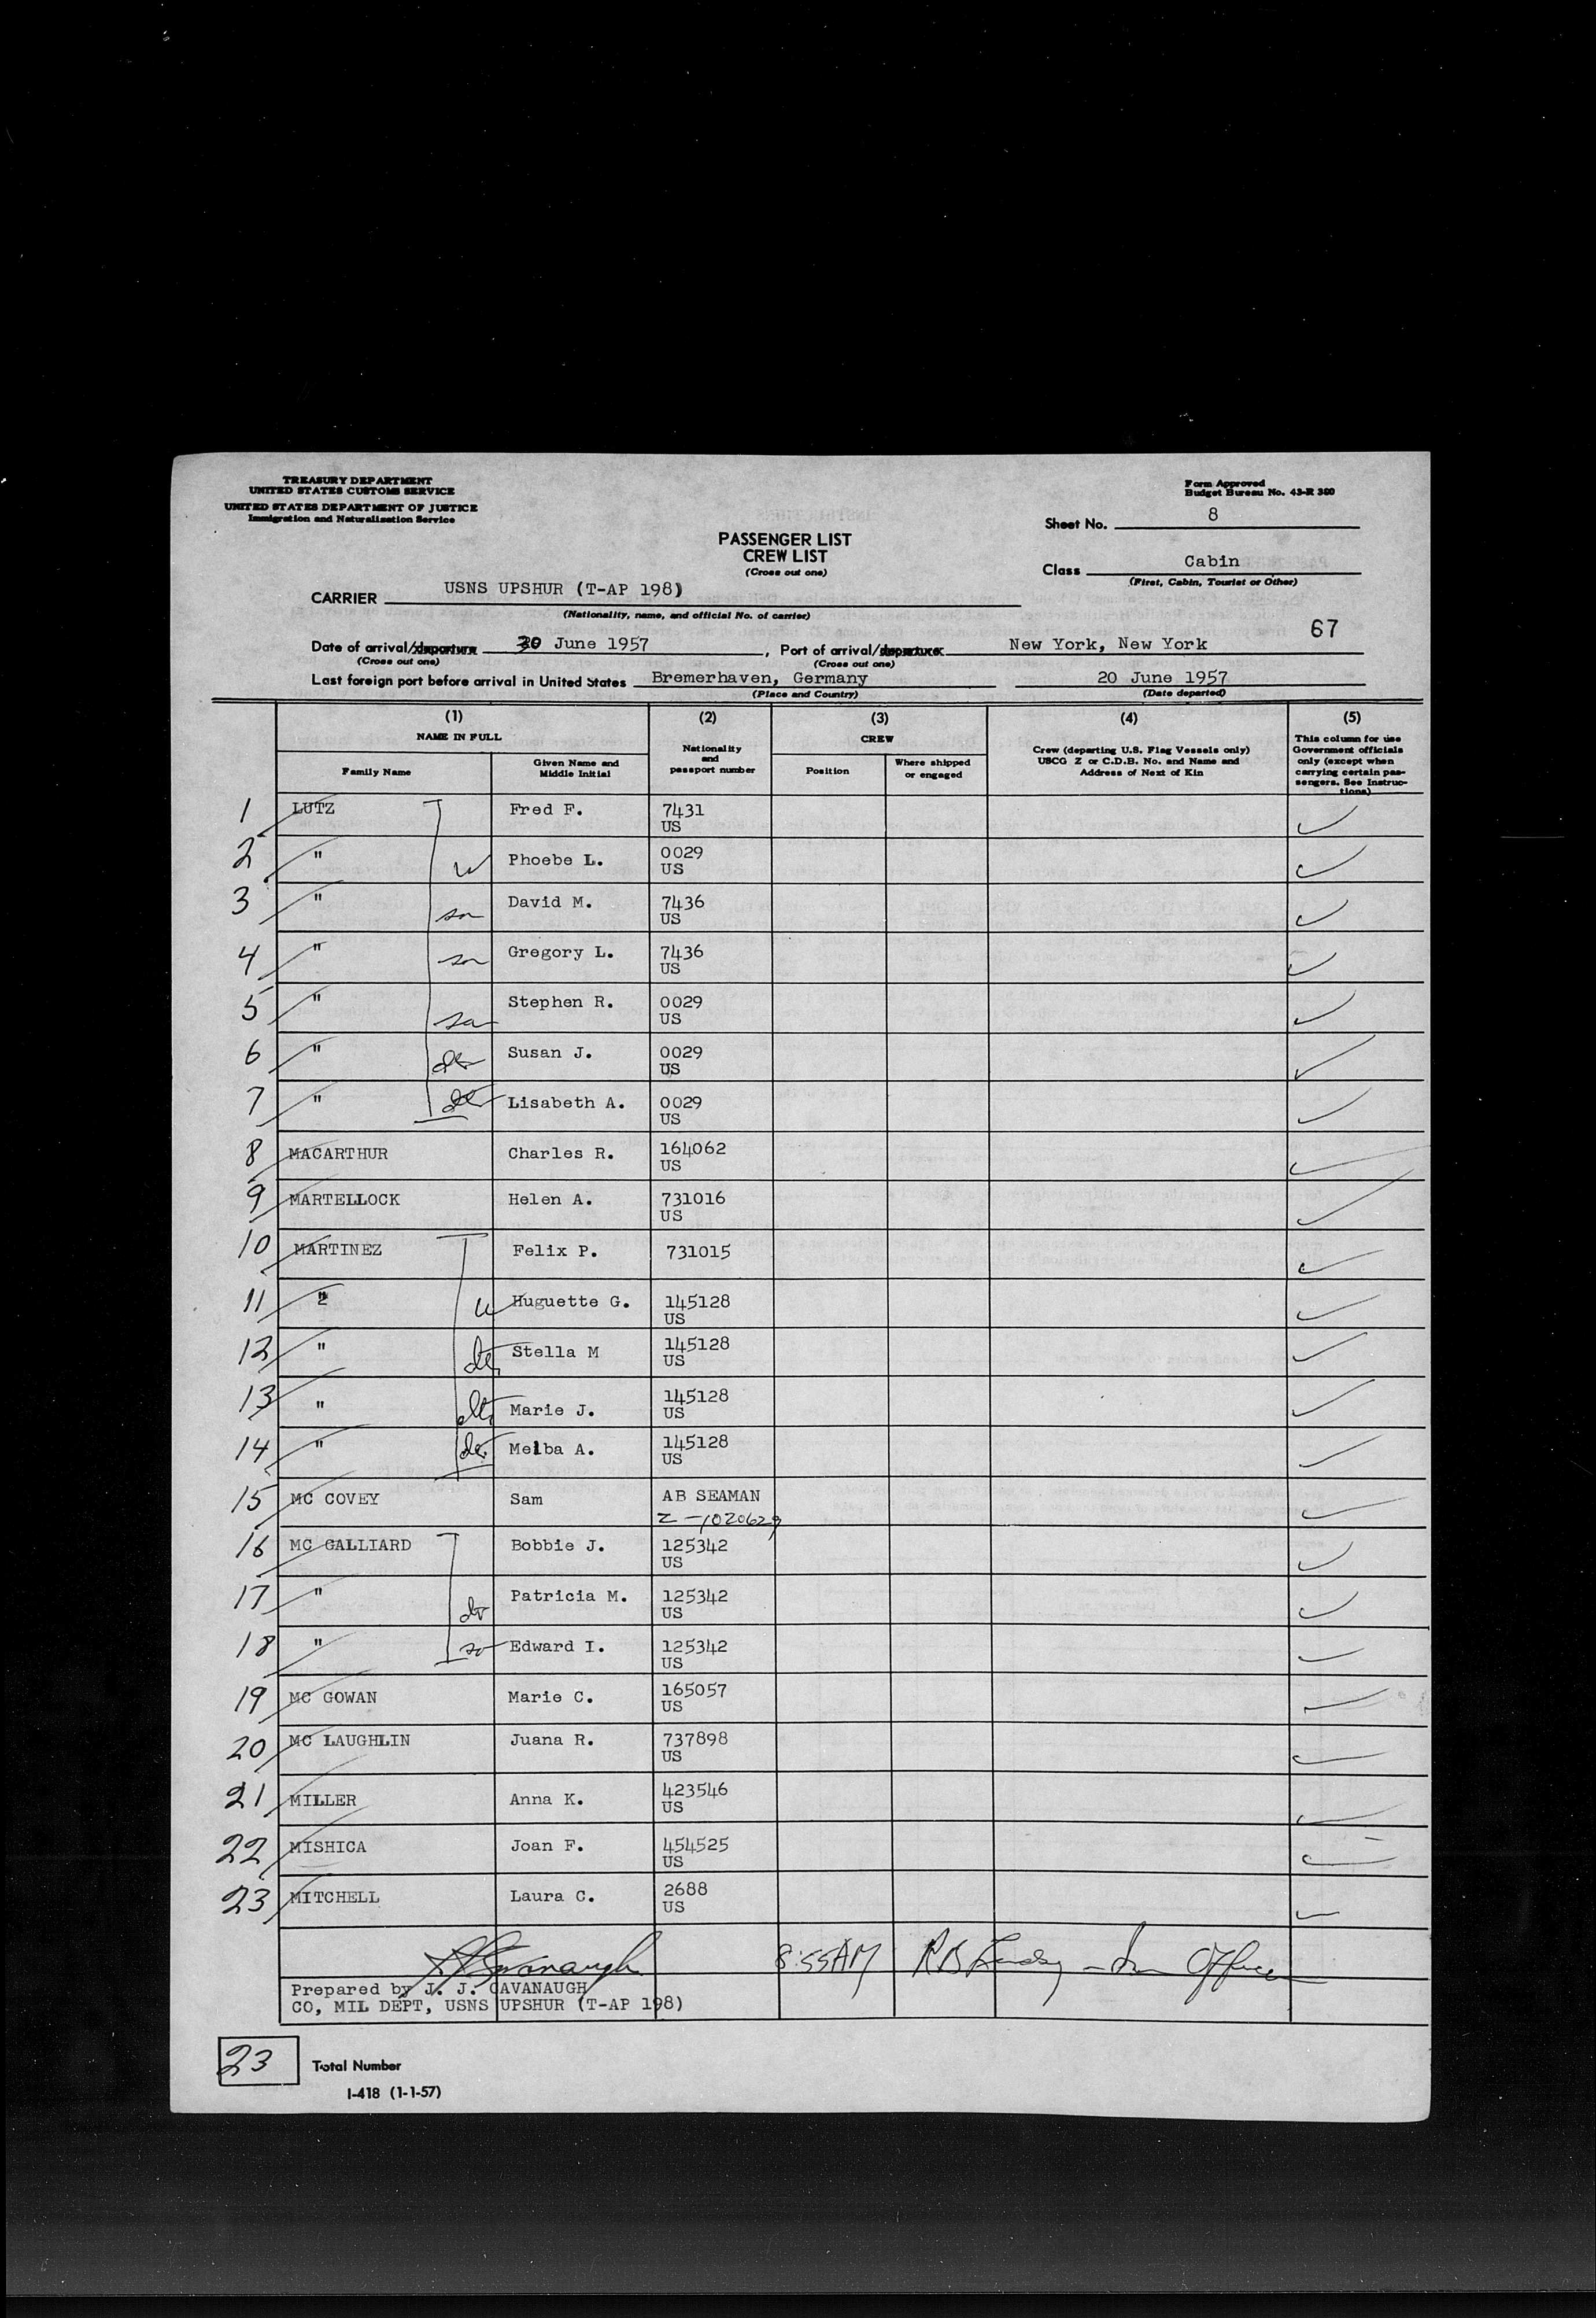 TREASURY DEPARTMENT
UNITED STATES CUSTOMS SERVICE
UNITED STATES DEPARTMENT OF JUSTICE
Immigration and Naturalization Service
Form Approved
Budget Bureau No. 43-R 360
Sheet No. 8
PASSENGER LIST
CREW LIST
(Cross out one)
Class Cabin
(First, Cabin, Tourist or Other)
CARRIER USNS UPSHUR (T-AP 198)
(Nationality, name, and official No. of carrier)
67
Date of arrival/departure 30 June 1957, Port of arrival/departure New York, New York
(Cross out one) (Cross out one)
Last foreign port before arrival in United States Bremerhaven, Germany 20 June 1957
(Place and Country) (Date departed)
(1) (2) (3) (4) (5)
NAME IN FULL
Family Name
Given Name and Middle Initial
Nationality and passport number
CREW
Position
Where shipped or engaged
Crew (departing U.S. Flag Vessels only)
USCG Z or C.D.B. No. and Name and
Address of Next of Kin
This column for use
Government officials
only (except when
carrying certain pas-
sengers. See Instruc-
tions)
1 LUTZ Fred F. 7431 US
2 " W Phoebe L. 0029 US
3 " son David M. 7436 US
4 " son Gregory L. 7436 US
5 " son Stephen R. 0029 US
6 " dtr Susan J. 0029 US
7 " dtr Lisabeth A. 0029 US
8 MACARTHUR Charles R. 164062 US
9 MARTELLOCK Helen A. 731016 US
10 MARTINEZ Felix P. 731015
11 " W Huguette G. 145128 US
12 " dtr Stella M 145128 US
13 " dtr Marie J. 145128 US
14 " dtr Melba A. 145128 US
15 MC COVEY Sam AB SEAMAN
Z-1020629
16 MC GALLIARD Bobbie J. 125342 US
17 " dtr Patricia M. 125342 US
18 " so Edward I. 125342 US
19 MC GOWAN Marie C. 165057 US
20 MC LAUGHLIN Juana R. 737898 US
21 MILLER Anna K. 423546 US
22 MISHICA Joan F. 454525 US
23 MITCHELL Laura C. 2688 US
8:55AM Officer
Prepared by J. J. CAVANAUGH
CO, MIL DEPT, USNS UPSHUR (T-AP 198)
23 Total Number
I-418 (1-1-57)